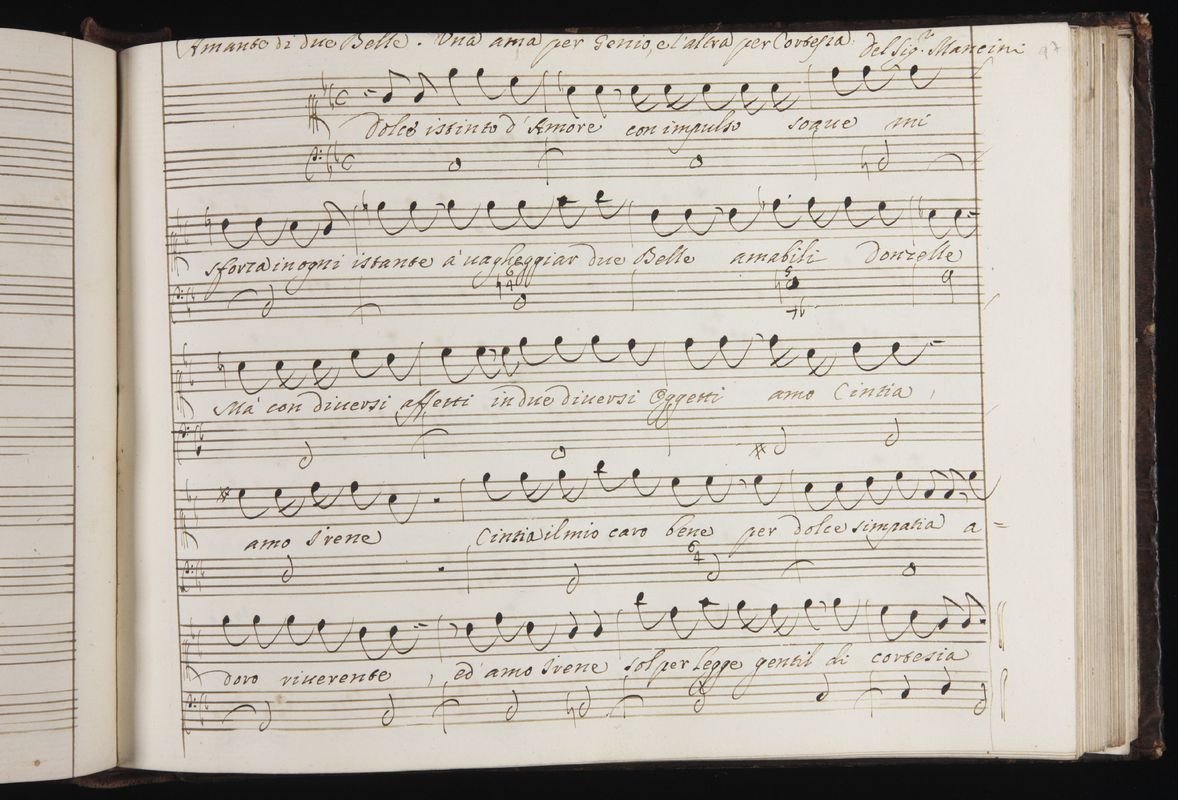 Amante di due Belle. Una ama per Genio, e l'altra per Cortesia. Del Sig.r Mancini 97
Dolce istinto d'Amore con impulso soaue mi
sforza in ogni istante à uagheggiar due Belle amabili Donzelle
Mà con diuersi affetti in due diuersi Oggetti amo Cintia,
amo Irene Cintia il mio caro bene per dolce simpatia a=
doro riuerente, ed amo Irene sol per legge gentil di cortesia